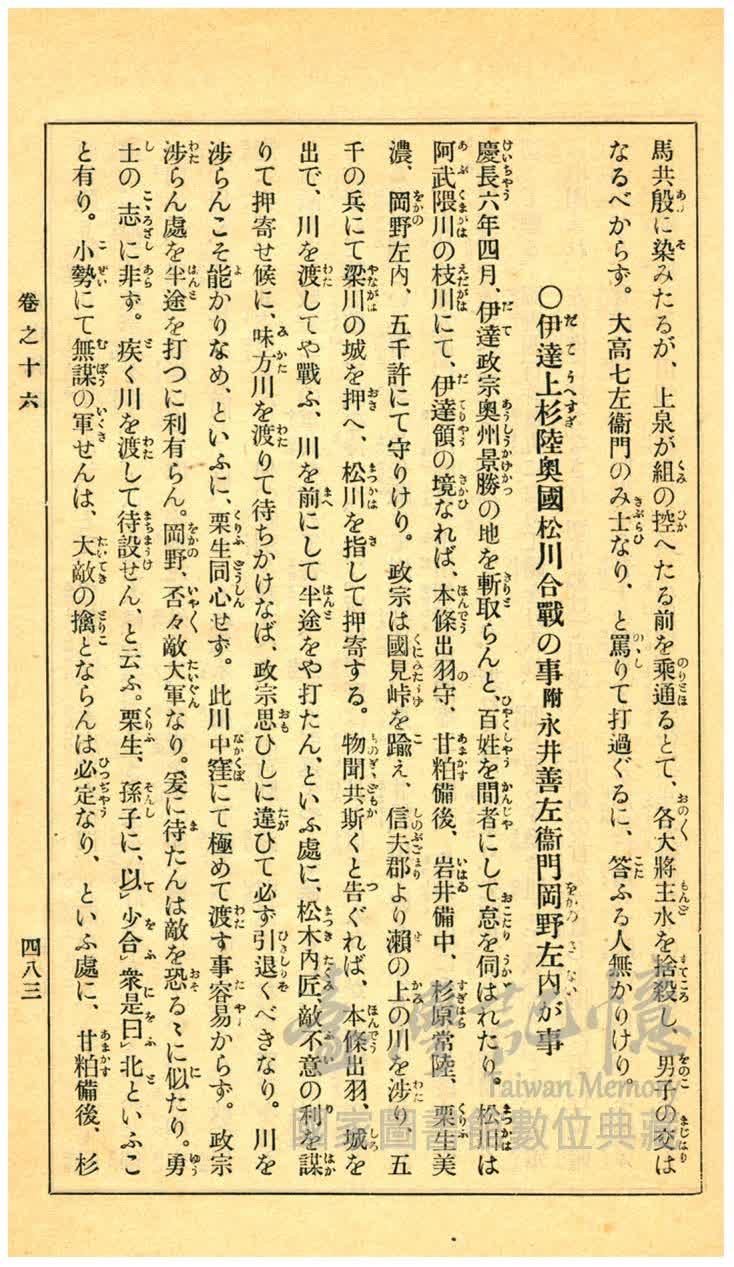 馬共殷に染みたるが、上泉が組の控へたる前を乘通るとて、各大將主水を捨殺し、男子の交は
なるべからず。大高七左衞門のみ士なり、と罵りて打過ぐるに、答ふる人無かりけり。
〇伊達上杉陸奧國松川合戰の事附永井善左衞門岡野左內が事
慶長六年四月、伊達政宗奧州景勝の地を斬取らんと、百姓を間者にして怠を伺はれたり。松川は
阿武隈川の枝川にて、伊達領の境なれば、本條出羽守、甘粕備後、岩井備中、杉原常陸、栗生美
濃、岡野左內、五千許にて守りけり。政宗は國見峠を踰え、信夫郡より瀨の上の川を涉り、五
千の兵にて梁川の城を押へ、松川を指して押寄する。物聞共斯くと告ぐれば、本條出羽、城を
出で、川を渡してや戰ふ、川を前にして半途をや打たん、といふ處に、松木內匠、敵不意の利を謀
りて押寄せ候に、味方川を渡りて待ちかけなば、政宗思ひしに違ひて必ず引退くべきなり。川を
涉らんこそ能かりなめ、といふに、栗生同心せず。此川中窪にて極めて渡す事容易からず。政宗
涉らん處を半途を打つに利有らん。岡野、否々敵大軍なり。爰に待たんは敵を恐るゝに似たり。勇
士の志に非ず。疾く川を渡して待設せん、と云ふ。栗生、孫子に、以少合衆是曰北といふこ
と有り。小勢にて無謀の軍せんは、大敵の擒とならんは必定なり、といふ處に、甘粕備後、杉
卷之十六
四八三
臺灣記憶
Taiwan Memory
國家圖書館數位典藏